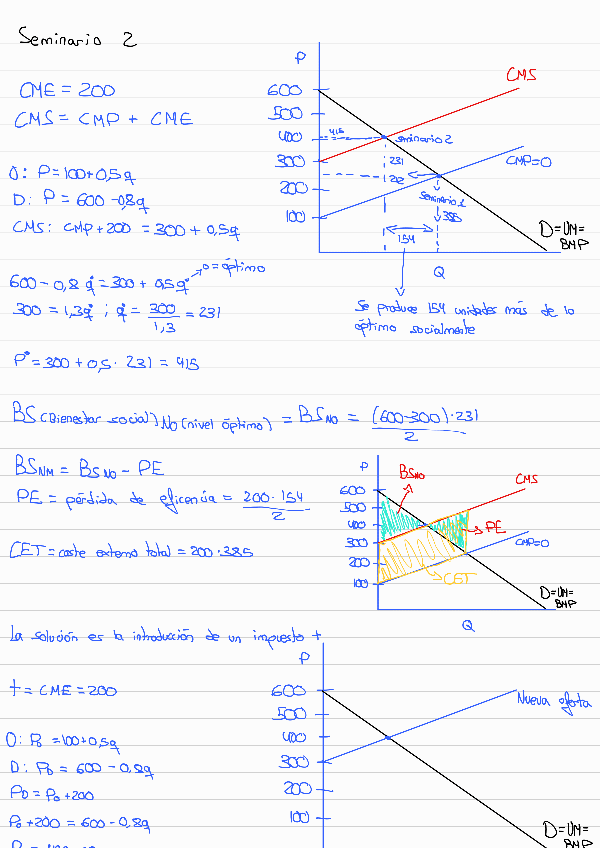 Seminario 2
CME = 200
CMS = CMP + CME
O: P = 100 + 0,5q
D: P = 600 - 0,8q
CMS: CMP + 200 = 300 + 0,5q
600 - 0,8 q° = 300 + 0,5q° → o = óptimo
300 = 1,3q° ; q° = 300/1,3 = 231
P° = 300 + 0,5 · 231 = 415
P
600
500
400
300
200
100
415
CMS
seminario 2
231
CMP=O
Seminario 1
385
154
D=UM=
BMP
Q
Se produce 154 unidades más de lo
óptimo socialmente
BS (Bienestar social) NO (nivel óptimo) = BS NO = (600-300)·231/2
BS NM = BS NO - PE
PE = pérdida de eficencia = 200·154/2
CET = coste externo total = 200·385
P
600
500
400
300
200
100
BS NO
CMS
PE
CMP=O
CET
D=UM=
BMP
Q
La solución es la introducción de un impuesto t
t = CME = 200
O: Po = 100 + 0,5q
D: PD = 600 - 0,8q
PD = Po + 200
Po + 200 = 600 - 0,8q
P
600
500
400
300
200
100
Nueva oferta
D=UM=
BMP